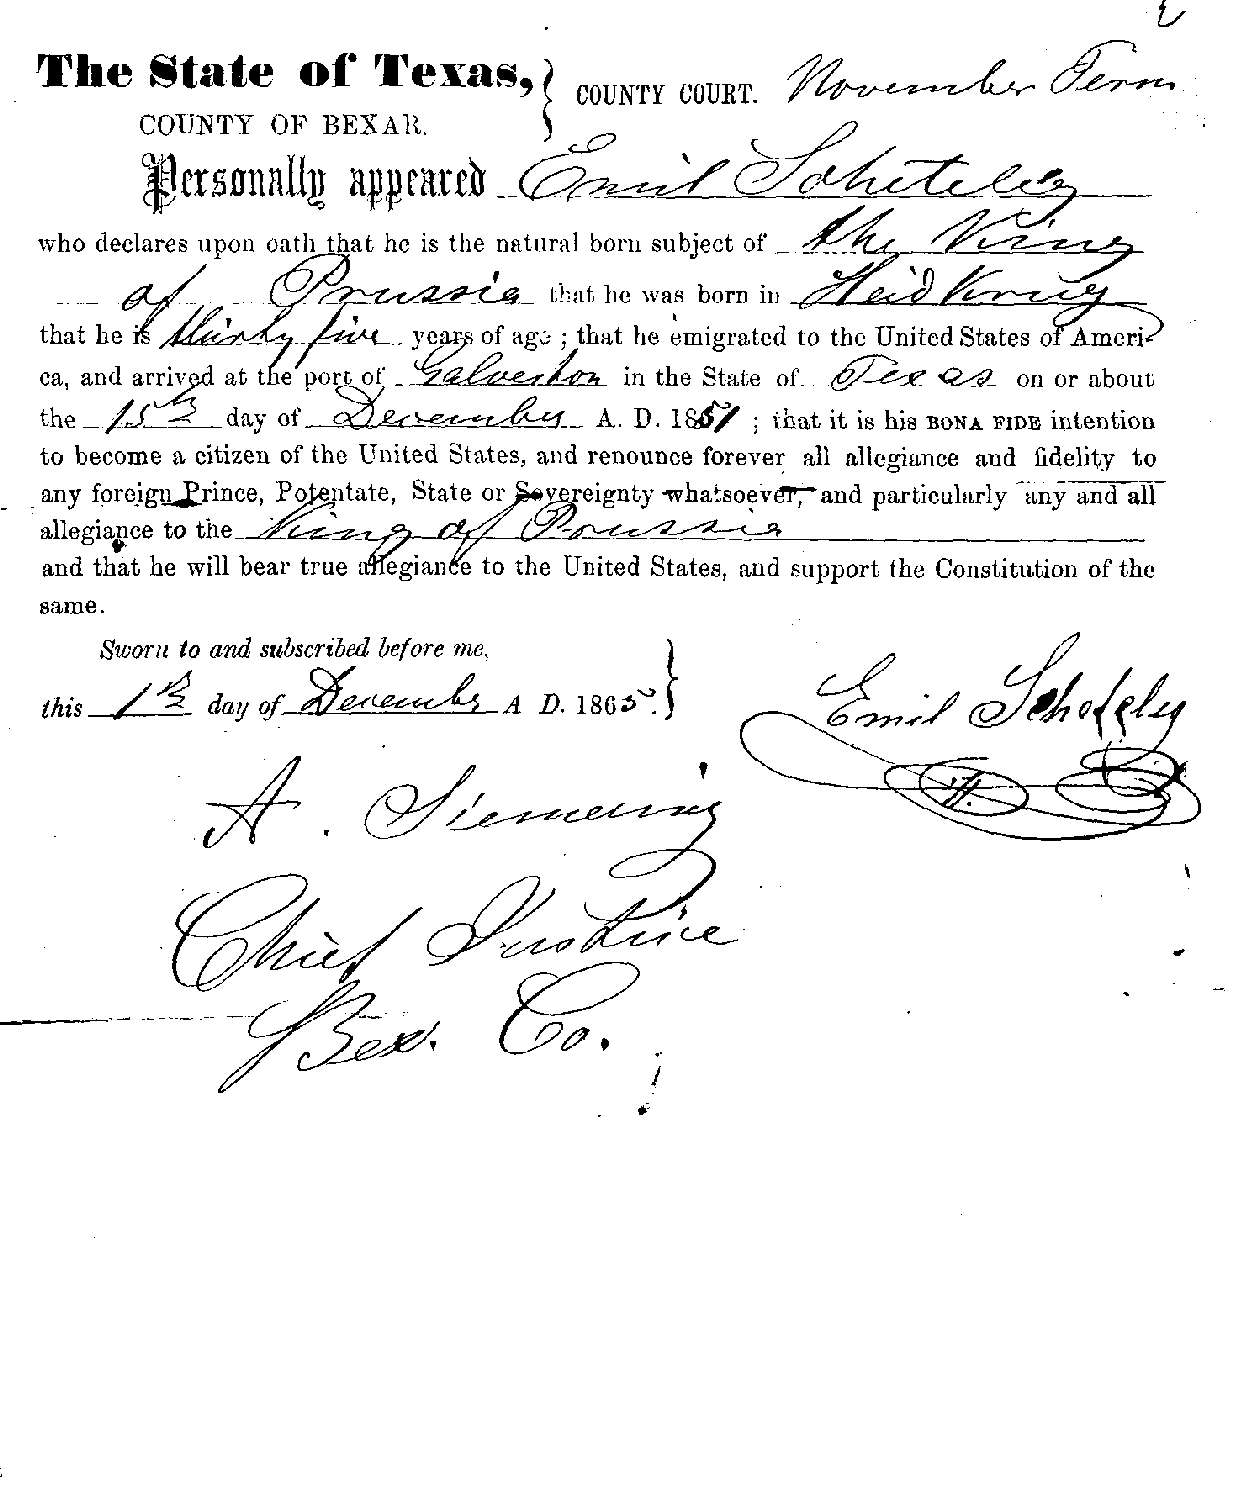 The State of Texas, } COUNTY COURT. November Term
COUNTY OF BEXAR.
Personally appeared Emil Scheteley
who declares upon oath that he is the natural born subject of the King
of Prussia that he was born in Heid Krug
that he is thirty five years of age ; that he emigrated to the United States of Ameri-
ca, and arrived at the port of Galveston in the State of Texas on or about
the 15th day of December A. D. 1851 ; that it is his BONA FIDE intention
to become a citizen of the United States, and renounce forever all allegiance and fidelity to
any foreign Prince, Potentate, State or Sovereignty whatsoever, and particularly any and all
allegiance to the King of Prussia
and that he will bear true allegiance to the United States, and support the Constitution of the
same.
Sworn to and subscribed before me,
this 1st day of December A D. 1865. }
Emil
A. Siemering
Chief Justice
Bex. Co.